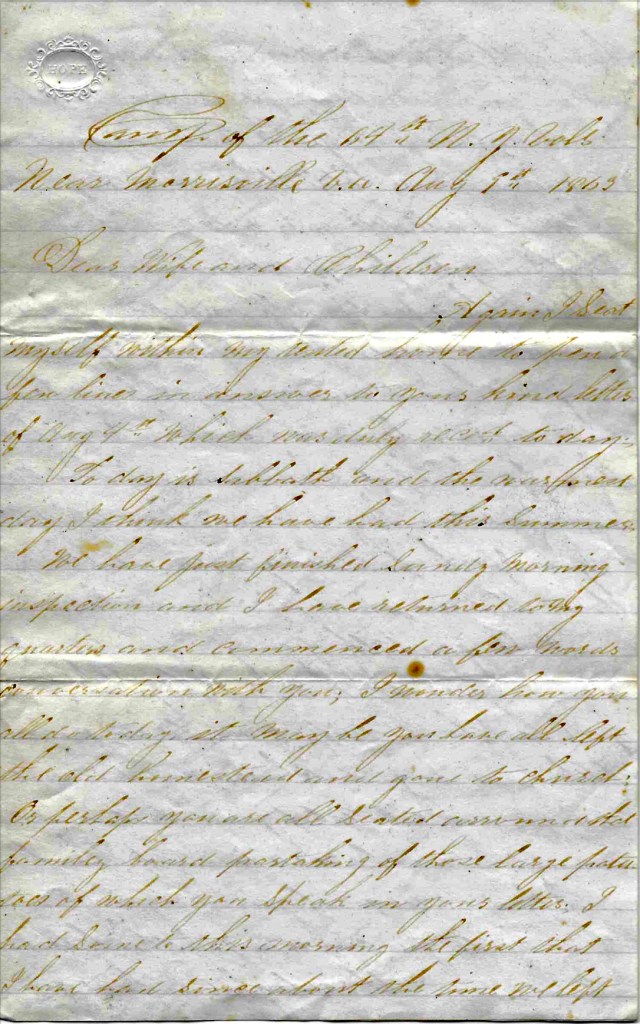 HOPE
Camp of the 64th N. Y. Vols
Near Morrisville Va. Aug 9th 1863
Dear Wife and Children
Again I Seat
myself within my tented house to pen a
few lines in answer to your kind letter
of Aug 4th which was duly recd to day.
To day is Sabbath and the warmest
day I think we have had this Summer
We have just finished Sundy Morning
inspection and I have returned to my
quarters and commenced a few words
conversation with you; I wonder how you
all do today it may be you have all left
the old homestead and gone to church;
Or perhaps you are all Seated arround the
family board partaking of those large pota
toes of which you Speak in your letter; I
had Some this morning the first that
I have had Since about the time we left